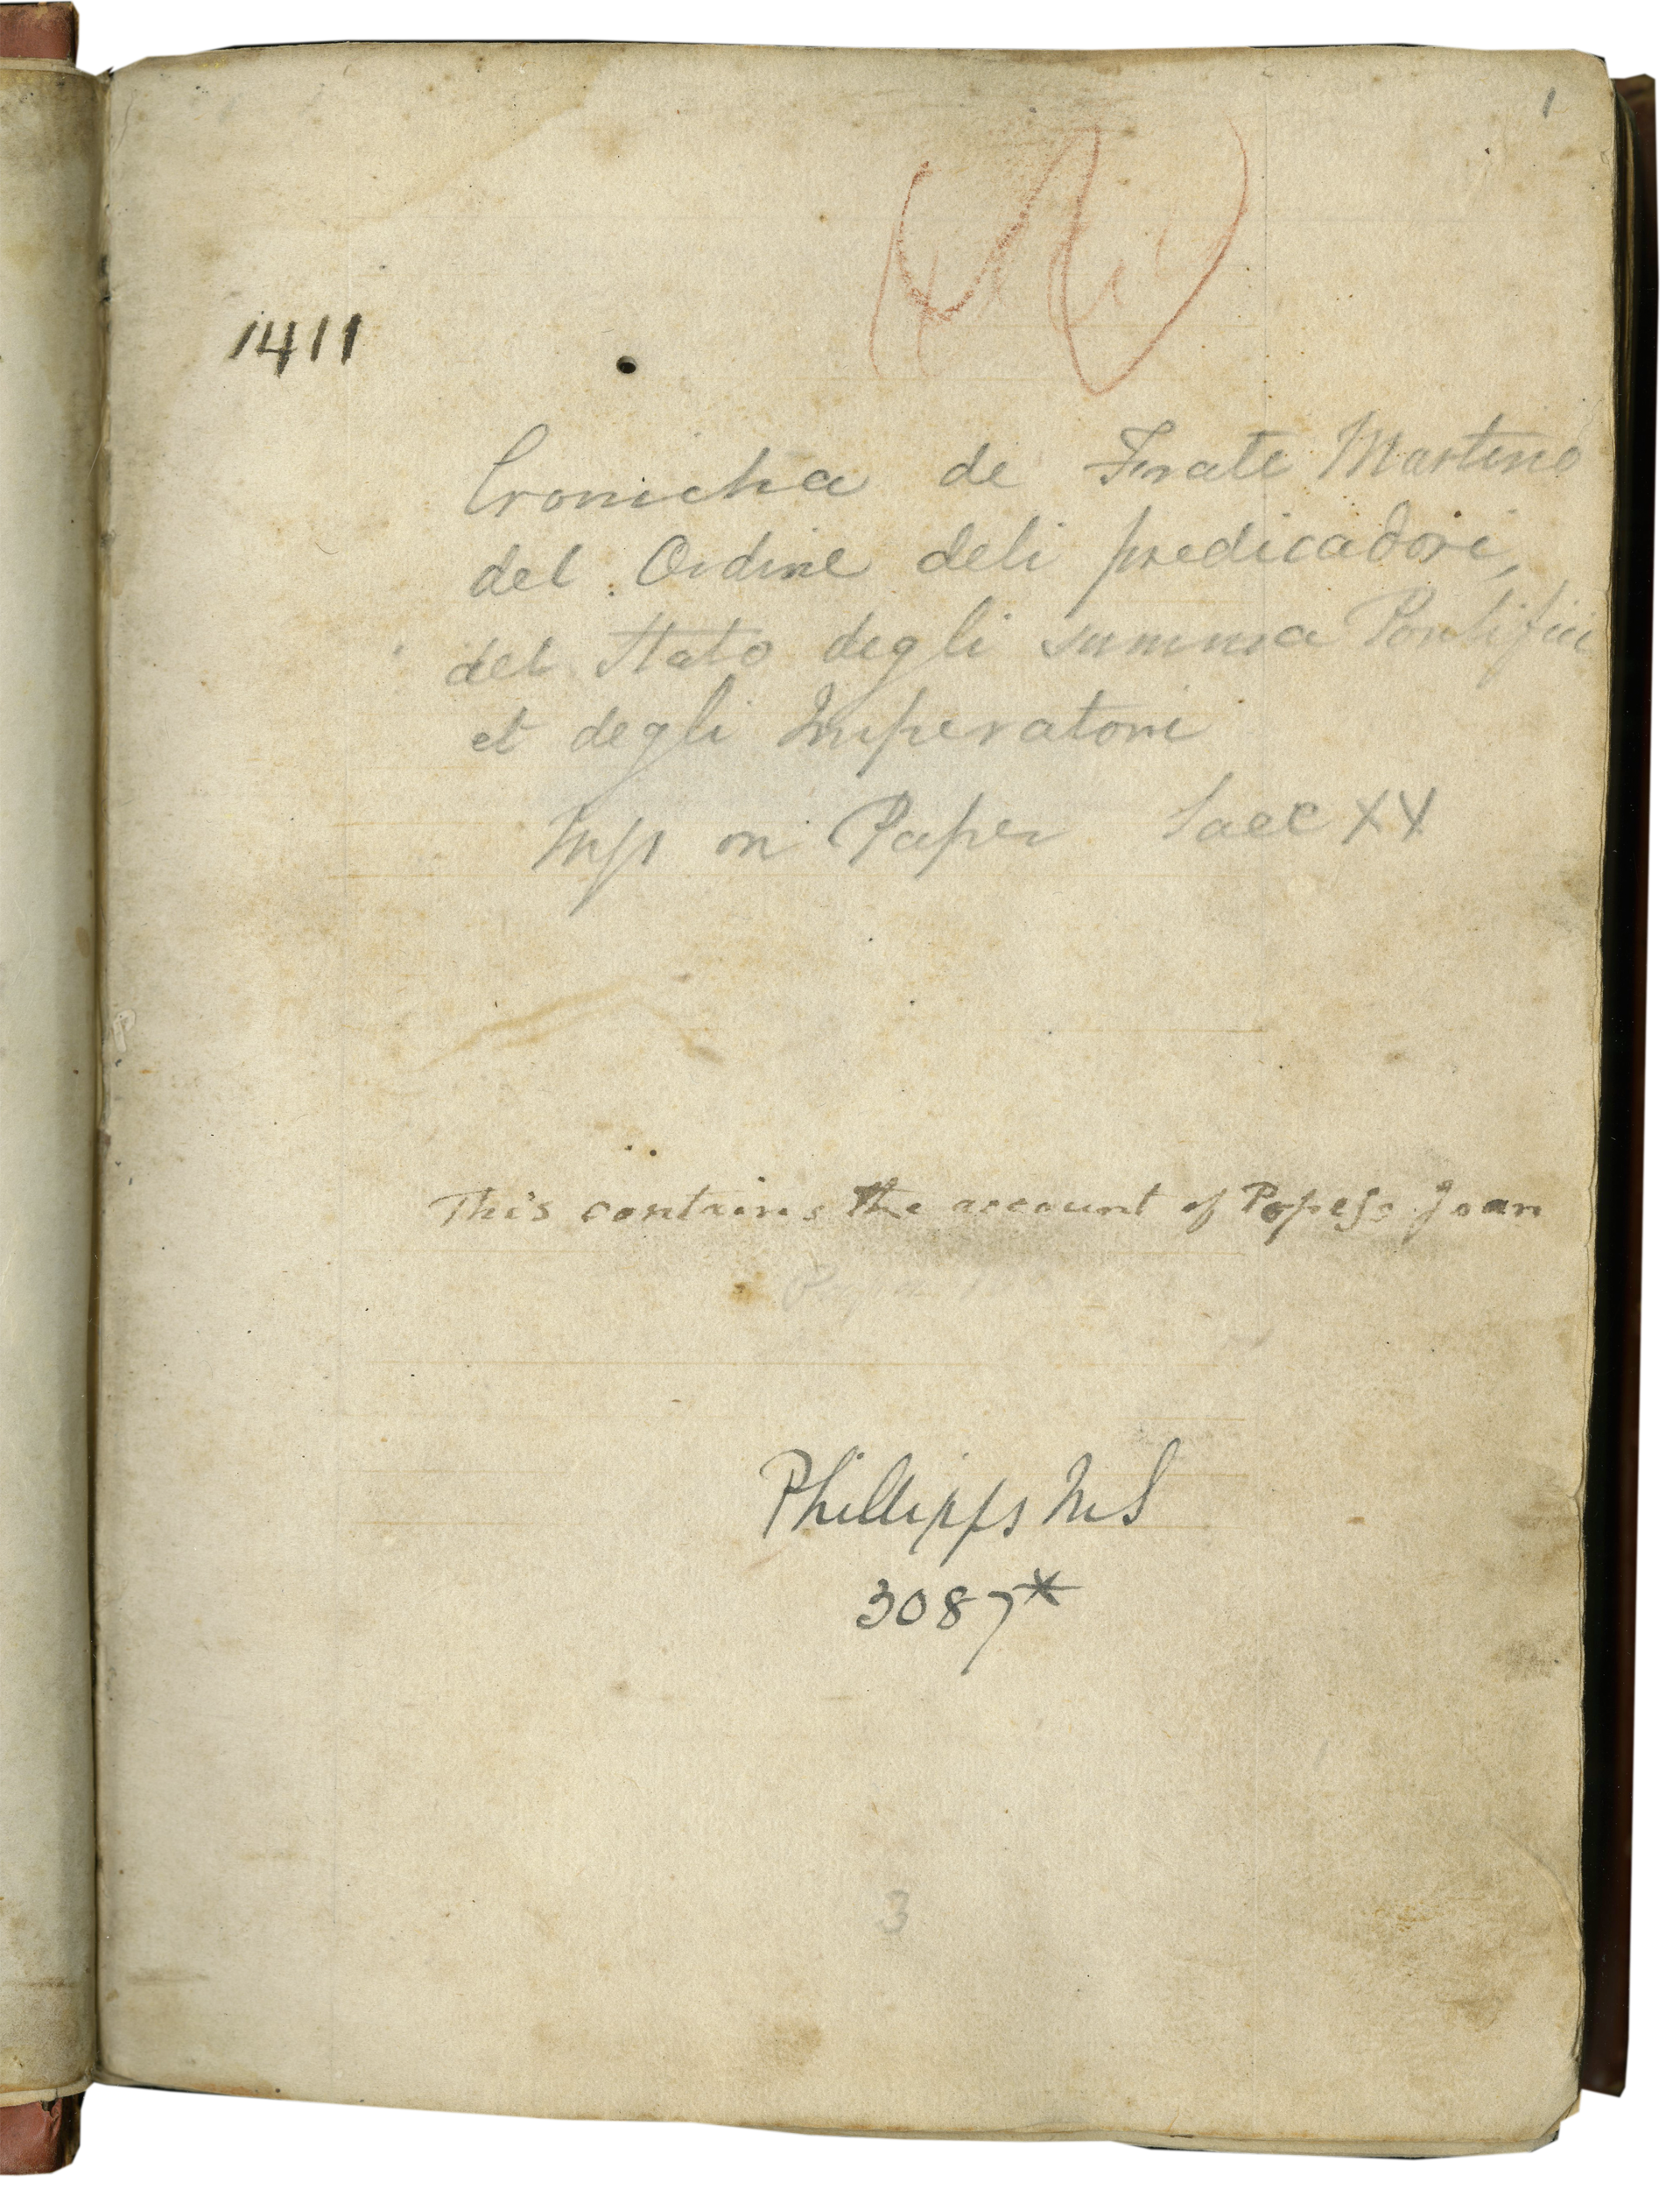 1
1411
Cronicha de Frate Martino
del Ordine deli predicadori,
del Stato degli summa Pontifici
et degli Imperatori
Mss on Paper Saec XV
This contains the account of Popess Joan
Phillipps MS
3087*
3